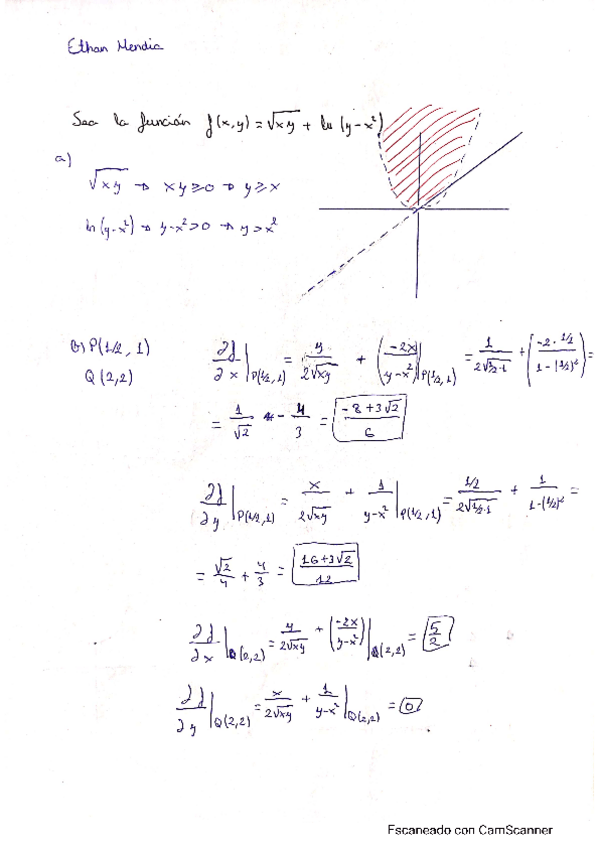 Ethan Mendia
Sea la función f(x,y) = √xy + ln (y-x²)
a)
√xy → xy ≥ 0 → y ≥ x
ln(y-x²) → y-x² > 0 → y > x²
b) P(1/2, 1)
Q(2,2)
∂f/∂x |P(1/2,1) = y/2√xy + (-2x/y-x²)|P(1/2,1) = 1/2√1/2·1 + (-2·1/2/1-(1/2)²) =
= 1/√2 - 4/3 = -8+3√2/6
∂f/∂y |P(1/2,1) = x/2√xy + 1/y-x² |P(1/2,1) = 1/2/2√1/2·1 + 1/1-(1/2)² =
= √2/4 + 4/3 = 16+3√2/12
∂f/∂x |Q(2,2) = y/2√xy + (-2x/y-x²)|Q(2,2) = 5/2
∂f/∂y |Q(2,2) = x/2√xy + 1/y-x² |Q(2,2) = 0
Escaneado con CamScanner